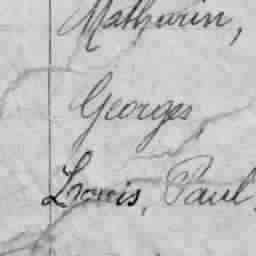 Mathurin,
Georges,
Louis, Paul,